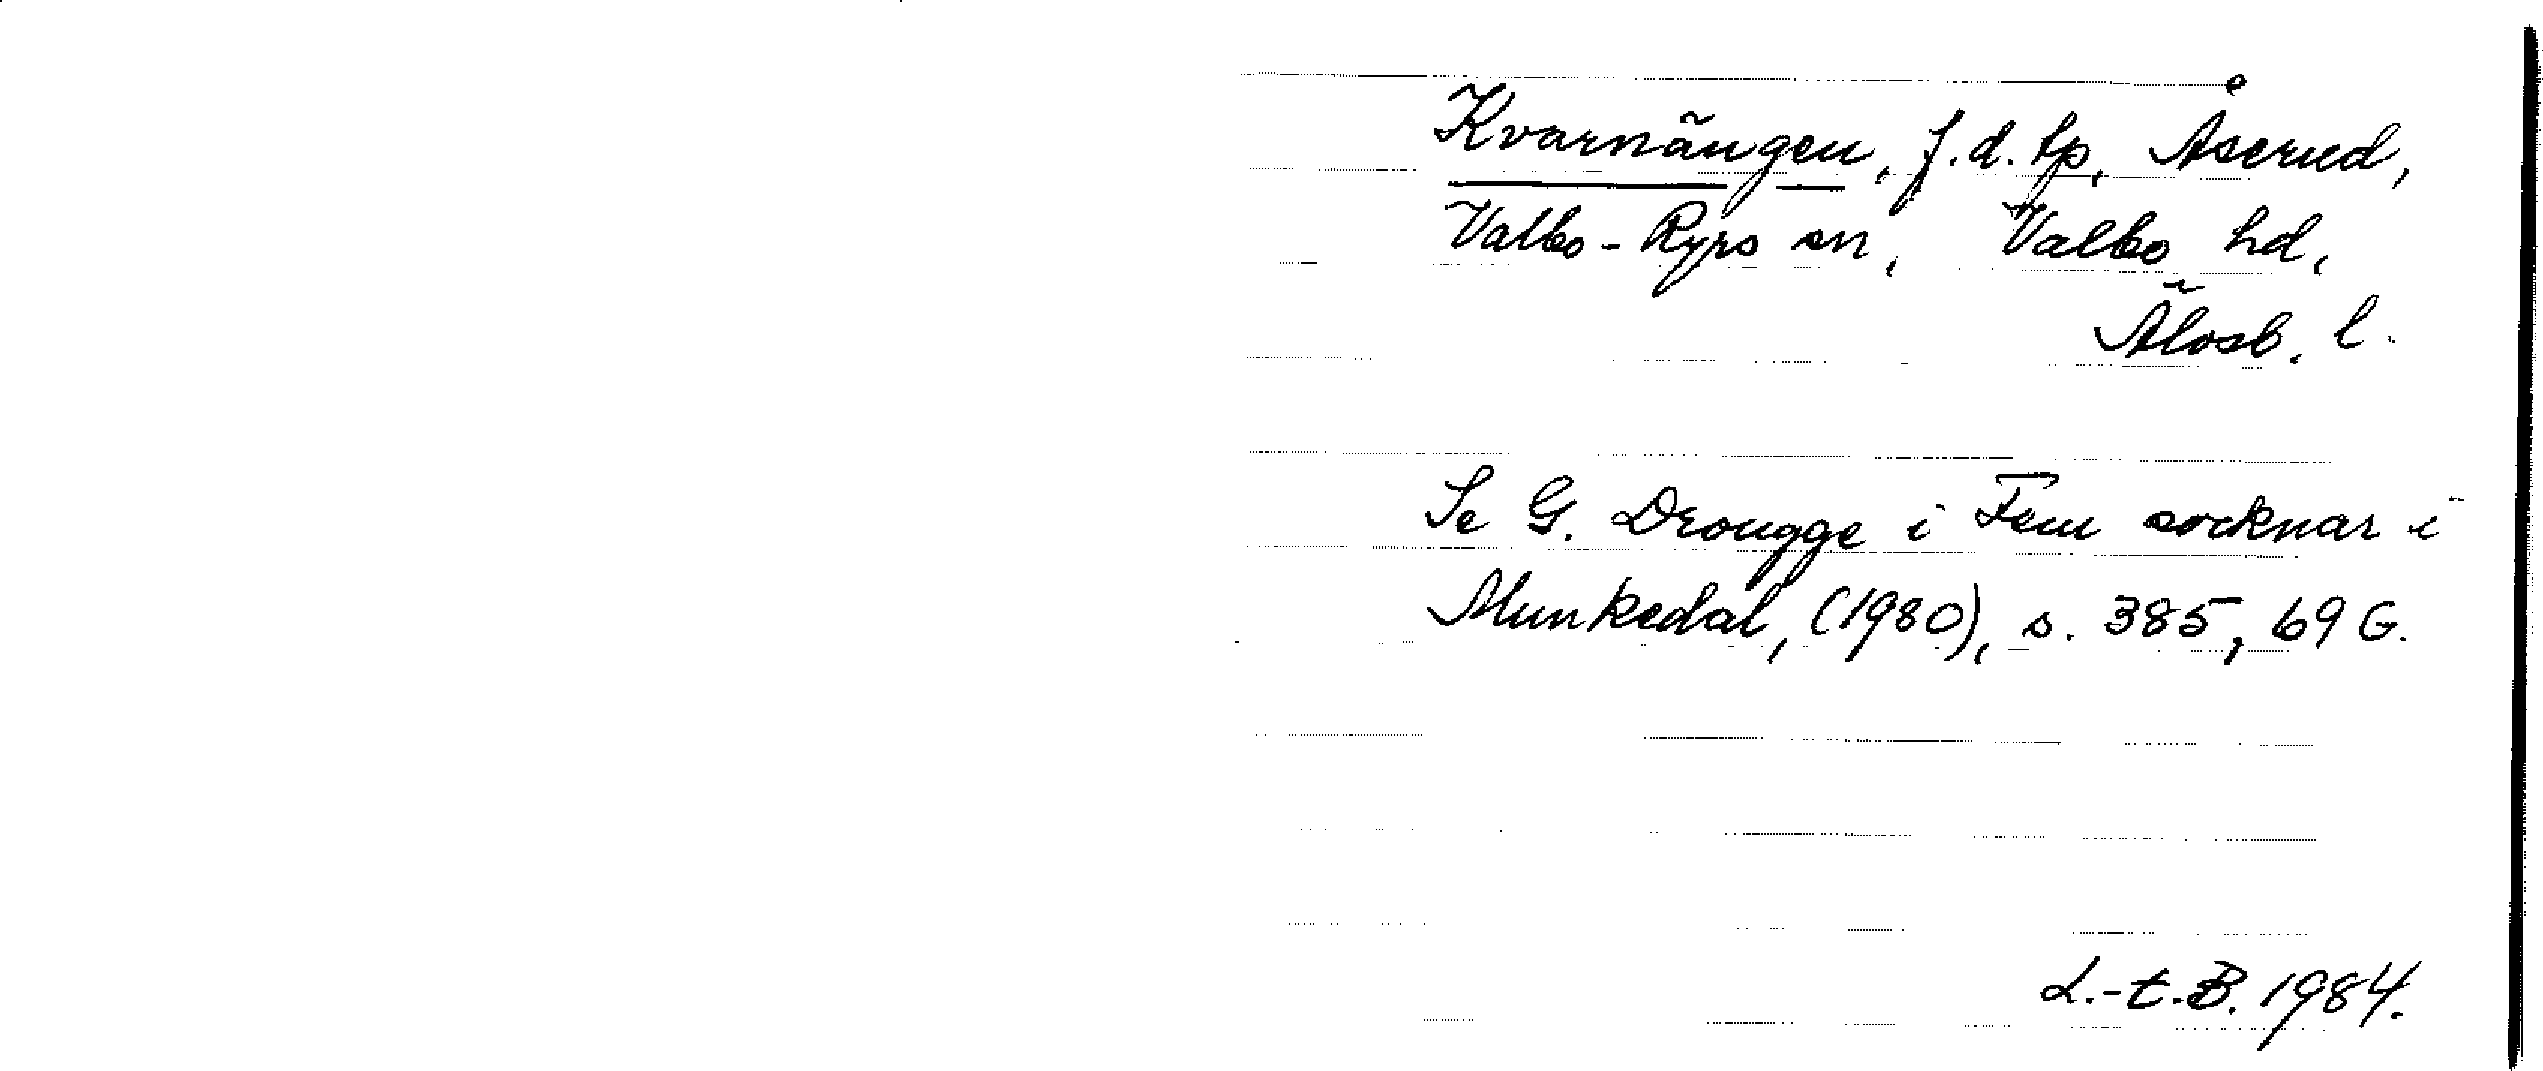 Kvarnängen, f.d. tp, Åserud,
Valbo-Ryrs sn, Valbo hd,
Älvsb. l.
Se G. Drougge i Fem socknar i
Munkedal, (1980), s. 385, 69 G.
L.-E.B. 1984.